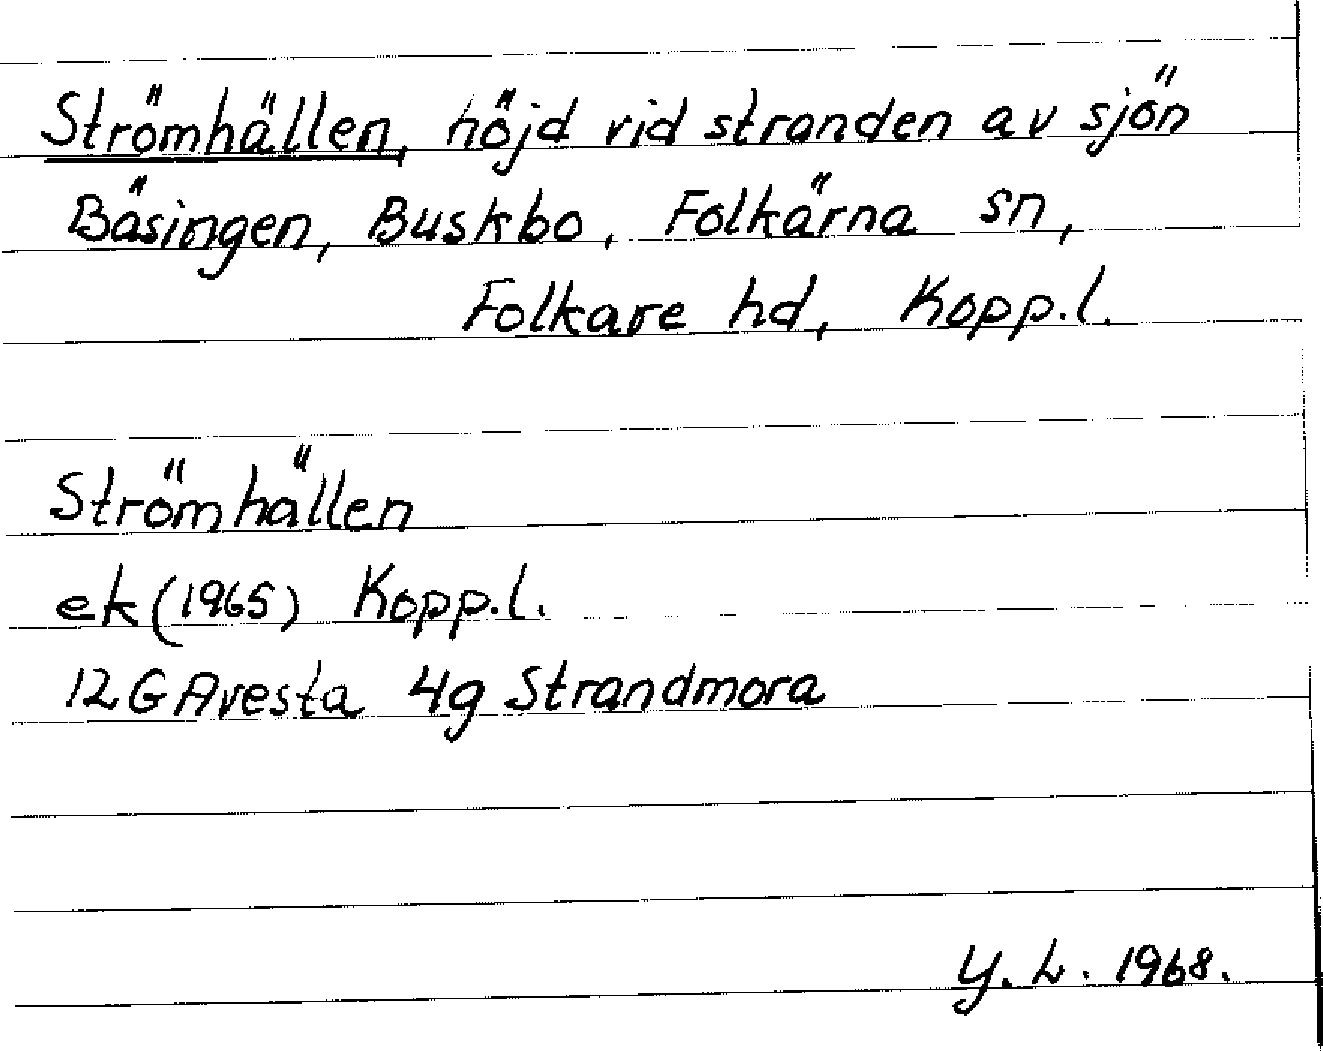 Strömhällen, höjd vid stranden av sjön
Bäsingen, Buskbo, Folkärna sn,
Folkare hd, Kopp.l.
Strömhällen
ek (1965) Kopp.l.
12G Avesta 4g Strandmora
Y.L. 1968.